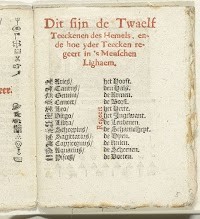 Dit sijn de Twaelf
Teeckenen des Hemels, en-
de hoe yder Teecken re-
geert in 's Menschen
Lighaem.
Aries, het Hooft.
Taurus, den Hals.
Gemini, de Armen.
Cancer, de Borst.
Leo, het Herte.
Virgo, het Ingewant.
Libra, de
Scorpius,
Sagittarius, de Dyen.
Capricornus, de Knien.
Aquarius, de Scheenen.
Pisces, de Voeten.